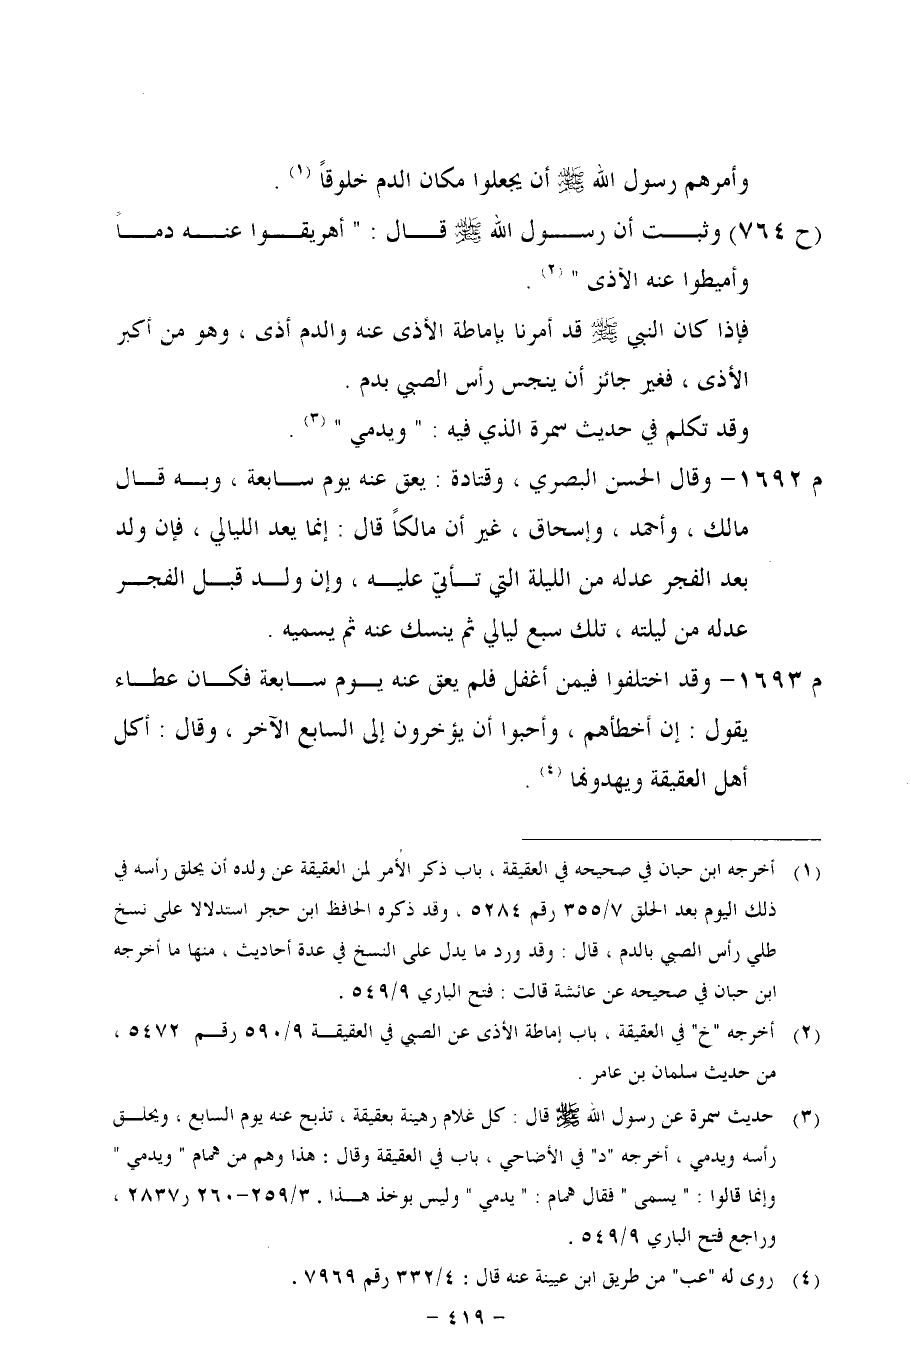 وأمرهم رسول الله ﷺ أن يجعلوا مكان الدم خلوقاً (١) .
(ح ٧٦٤) وثبت أن رسول الله ﷺ قال : " أهريقوا عنه دماً
وأميطوا عنه الأذى " (٢) .
فإذا كان النبي ﷺ قد أمرنا بإماطة الأذى عنه والدم أذى ، وهو من أكبر
الأذى ، فغير جائز أن ينجس رأس الصبي بدم .
وقد تكلم في حديث سمرة الذي فيه : " ويدمي " (٣) .
م ١٦٩٢- وقال الحسن البصري ، وقتادة : يعق عنه يوم سابعة ، وبه قال
مالك ، وأحمد ، وإسحاق ، غير أن مالكاً قال : إنما يعد الليالي ، فإن ولد
بعد الفجر عدله من الليلة التي تأتي عليه ، وإن ولد قبل الفجر
عدله من ليلته ، تلك سبع ليالي ثم ينسك عنه ثم يسميه .
م ١٦٩٣- وقد اختلفوا فيمن أغفل فلم يعق عنه يوم سابعة فكان عطاء
يقول : إن أخطأهم ، وأحبوا أن يؤخرون إلى السابع الآخر ، وقال : أكل
أهل العقيقة ويهدونها (٤) .
(١) أخرجه ابن حبان في صحيحه في العقيقة ، باب ذكر الأمر لمن العقيقة عن ولده أن يحلق رأسه في
ذلك اليوم بعد الحلق ٣٥٥/٧ رقم ٥٢٨٤ ، وقد ذكره الحافظ ابن حجر استدلالا على نسخ
طلي رأس الصبي بالدم ، قال : وقد ورد ما يدل على النسخ في عدة أحاديث ، منها ما أخرجه
ابن حبان في صحيحه عن عائشة قالت : فتح الباري ٥٤٩/٩ .
(٢) أخرجه "خ" في العقيقة ، باب إماطة الأذى عن الصبي في العقيقة ٥٩٠/٩ رقم ٥٤٧٢ ،
من حديث سلمان بن عامر .
(٣) حديث سمرة عن رسول الله ﷺ قال : كل غلام رهينة بعقيقة ، تذبح عنه يوم السابع ، ويحلق
رأسه ويدمي ، أخرجه "د" في الأضاحي ، باب في العقيقة وقال : هذا وهم من همام " ويدمي "
وإنما قالوا : " يسمى " فقال همام : " يدمي " وليس بوخذ هذا . ٢٥٩/٣-٢٦٠ ر٢٨٣٧ ،
وراجع فتح الباري ٥٤٩/٩ .
(٤) روى له "عب" من طريق ابن عيينة عنه قال : ٣٣٢/٤ رقم ٧٩٦٩ .
- ٤١٩ -